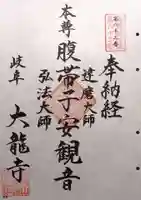 奉納経
達磨大師
本尊 腹帯子安観音
弘法大師
岐阜 大龍寺